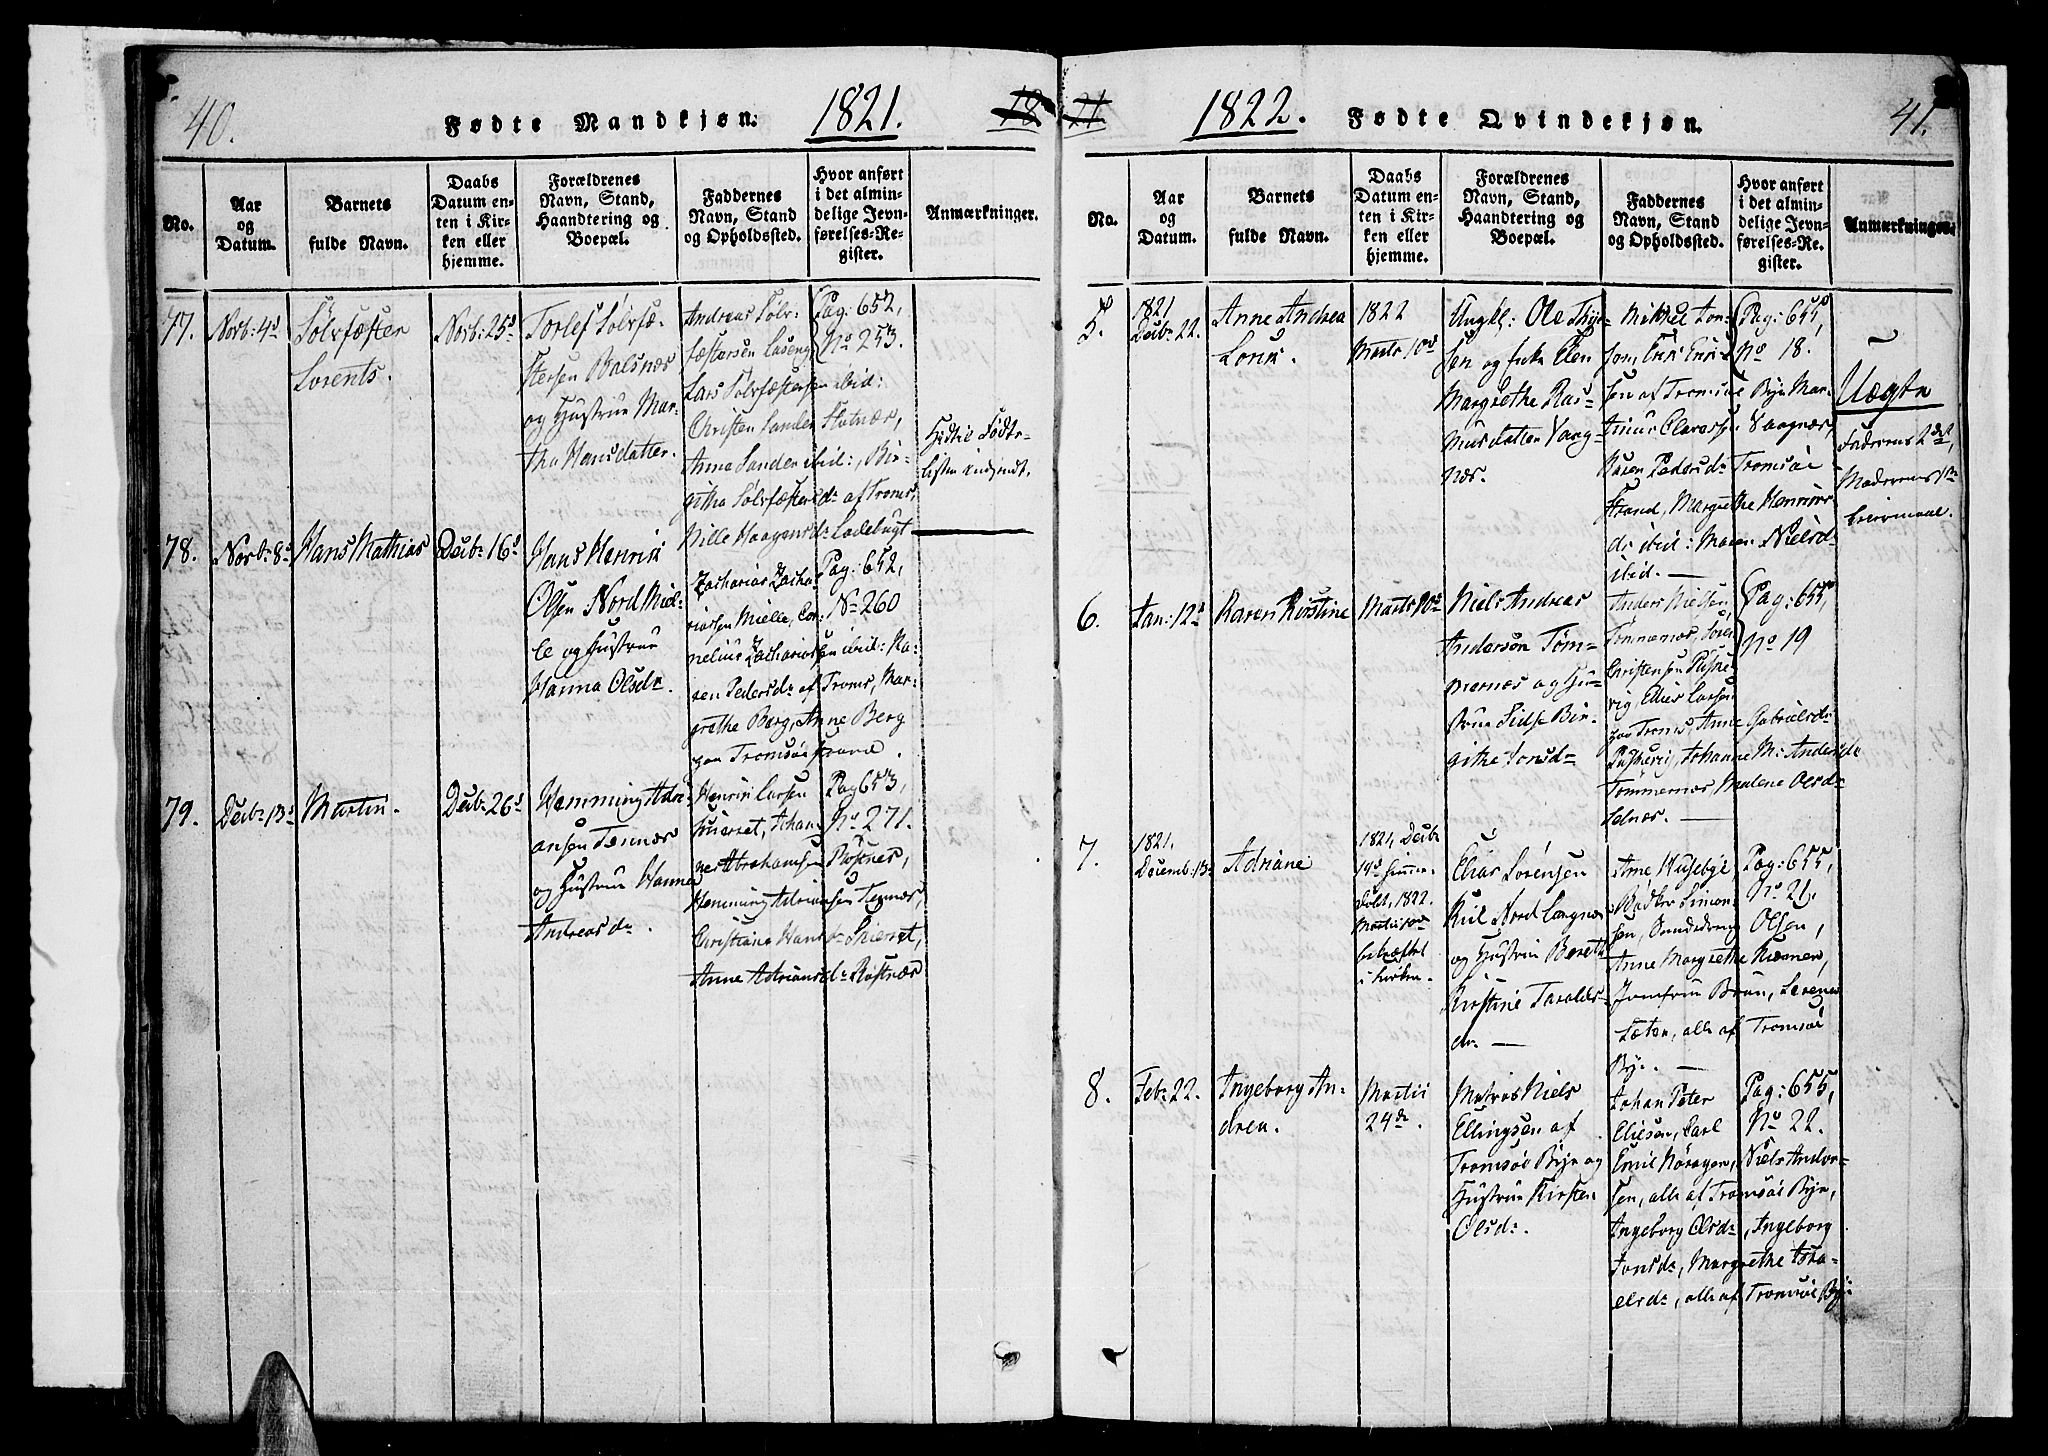 40.
Fødte Mandkjøn:
1821.
18
No.
Aar
og
Datum.
Barnets
fulde Navn.
Daabs
Datum en-
ten i Kir-
ken eller
hjemme.
Forældrenes
Navn, Stand,
Haandtering og
Boepæl.
Faddernes
Navn, Stand
og Opholdssted.
Hvor anført
i det almin-
delige Jevn-
førelses-Re-
gister.
Anmærkninger.
77.
Novb: 4d
Sølvfæster
Lorents.
Novb: 25d
Torlef Sølvfæ-
stersen Balsnæs
og Hustrue Mar-
tha Hansdatter.
Andreas Sølv-
fæstersen
Lars Sølvfæstersen ibid:
Christen Sander
Anna Sander ibid:, Bir-
githa Sølvfæstersdr af Troms,
Nille Haagensdr Ladebugt
Pag: 652,
No 253.
Hidtil Fødte-
listen indsendt.
78.
Novb: 8d
Hans Mathias
Decbr 16d
Hans Henrik
Olsen Nord Miel-
le og Hustrue
Hanna Olsdr.
Zacharias Zacha-
riassen Mielle, Cor-
nelius Zachariassen ibid: Ka-
ren Pedersdr af Troms, Mar-
grethe Berg, Anne Berg
paa Tromsøe
Pag: 652,
No 260
79.
Decbr 13d
Martin.
Decbr 26d
Hemming Adri-
ansen Tennæs
og Hustrue Hanna
Andreasdr.
Henrik Larsen
Johan-
nes Abrahamsen Røstnes,
Hemming Adriansen Tennæs,
Christiana Hansdr
Anne Adriansdr Røstnæs
Pag 653,
No 271.
21
1822.
Fødte Qvindekjøn.
41.
No.
Aar
og
Datum.
Barnets
fulde Navn.
Daabs
Datum en-
ten i Kir-
ken eller
hjemme.
Forældrenes
Navn, Stand,
Haandtering og
Boepæl.
Faddernes
Navn, Stand
og Opholdssted.
Hvor anført
i det almin-
delige Jevn-
førelses-Re-
gister.
Anmærkninger.
5.
1821
Decbr 22.
Anne Andrea
1822
Marts 10d
Ungkl: Ole Thye-
sen og Enke Elen
Margrethe Ras-
musdatter Vaag-
næs.
Mikkel Jon-
son, Erik Erik-
sen af Tromsøe Bye, Mar-
Vaagnæs,
Karen Pedersdr Tromsøe
Strand, Margrethe Henriks
dr ibid: Maren Nielsdr
ibid. —
Pag: 655,
No 18.
Uægte
Faderens 2det,
Moderens 1te
Leiermaal.
6.
Jan: 12d
Karen Kirstine
Marts 10d
Niels Andreas
Andersen Tøm-
mernes og Hu-
strue Sidse Bir-
githe Jonsdr
Anders Nielsen
Tømmernes, Søren
Christensen
Elias Larsen
paa Troms, Anne Gabrielsdr
Johanne M: Andersdr
Tømmernæs, Malene Olsdr
Selnæs. —
Pag: 655,
No 19
7.
1821.
Decemb: 13d
Adriane
1821, Decbr
19d hjemme-
døbt, 1822.
Martii 10d
bekræftet
i Kirken.
Elias Sørensen
Kiil Nord Langnæs
og Hustrue Bereth
Kirstine Taralds-
dr. —
Arne Husebye,
Bødker Simon-
sen, Olsen,
Anne Margrethe Kiemer,
Jomfrue Brun,
Sæter, alle af Tromsøe
Bye. —
Pag: 655,
No 21.
8.
Febr 22.
Ingeborg An-
drea.
Martii
24de.
Matros Niels
Ellingsen af
Tromsøe Bye og
Hustrue Kirsten
Olsdr.
Johan Peter
Eliesen, Carl
Emil Nøragen, Niels Ander-
sen, alle af Tromsøe Bye,
Ingeborg Olsdr, Ingeborg
Jonsdr, Margrethe Isra-
elsdr, alle af Tromsøe Bye
Pag: 655,
No 22.